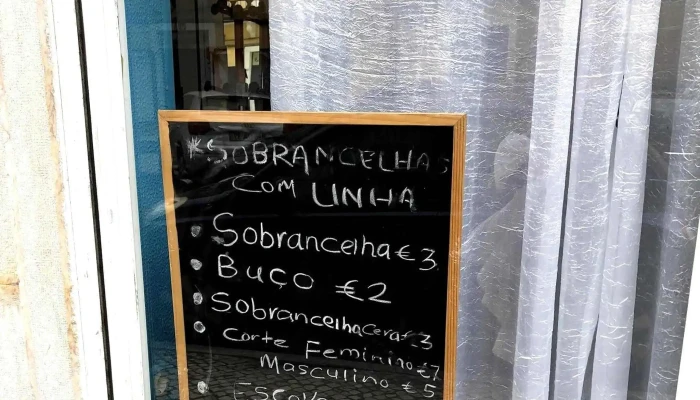 *SOBRANCELHAS
COM LINHA
• Sobrancelha €3
• Buço €2
• Sobrancelha Cera €3
• Corte Feminino €7
Masculino €5
• Escova